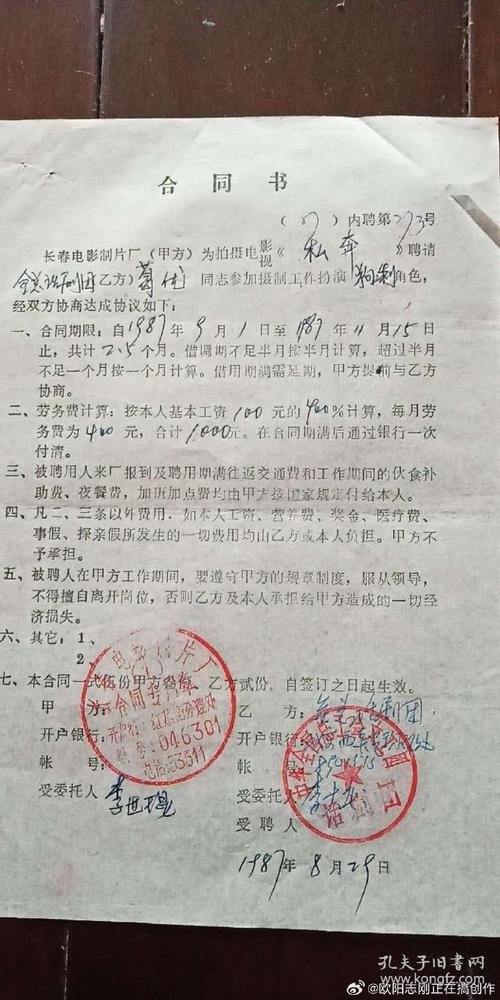 合同书
(87)内聘第273号
长春电影制片厂(甲方)为拍摄电影视《私奔》聘请
全总话剧团(乙方)葛优同志参加摄制工作扮演狗剩角色,
经双方协商达成协议如下:
一、合同期限:自1987年9月1日至1987年11月15日
止,共计2.5个月。借调期不足半月按半月计算,超过半月
不足一个月按一个月计算。借用期满需延期,甲方提前与乙方
协商。
二、劳务费计算:按本人基本工资100元的400%计算,每月劳
务费为400元,合计1000元。在合同期满后通过银行一次
付清。
三、被聘用人来厂报到及聘用期满往返交通费和工作期间的伙食补
助费、夜餐费,加班加点费均由甲方按国家规定付给本人。
四、凡二、三条以外费用,如本人工资、营养费、奖金、医疗费、
事假、探亲假所发生的一切费用均由乙方或本人负担。甲方不
予承担。
五、被聘人在甲方工作期间,要遵守甲方的规章制度,服从领导,
不得擅自离开岗位,否则乙方及本人承担给甲方造成的一切经
济损失。
六、其它:1、
2、
七、本合同一式伍份甲方叁份,乙方贰份,自签订之日起生效。
甲方:
开户银行:
帐号:
受委托人
长春电影制片厂
合同专用章
046301
电话:53311
乙方:全总话剧团
开户银行:
帐号:
受委托人
受聘人
话剧团
1987年8月29日
孔夫子旧书网
www.kongfz.com
@欧阳志刚正在搞创作